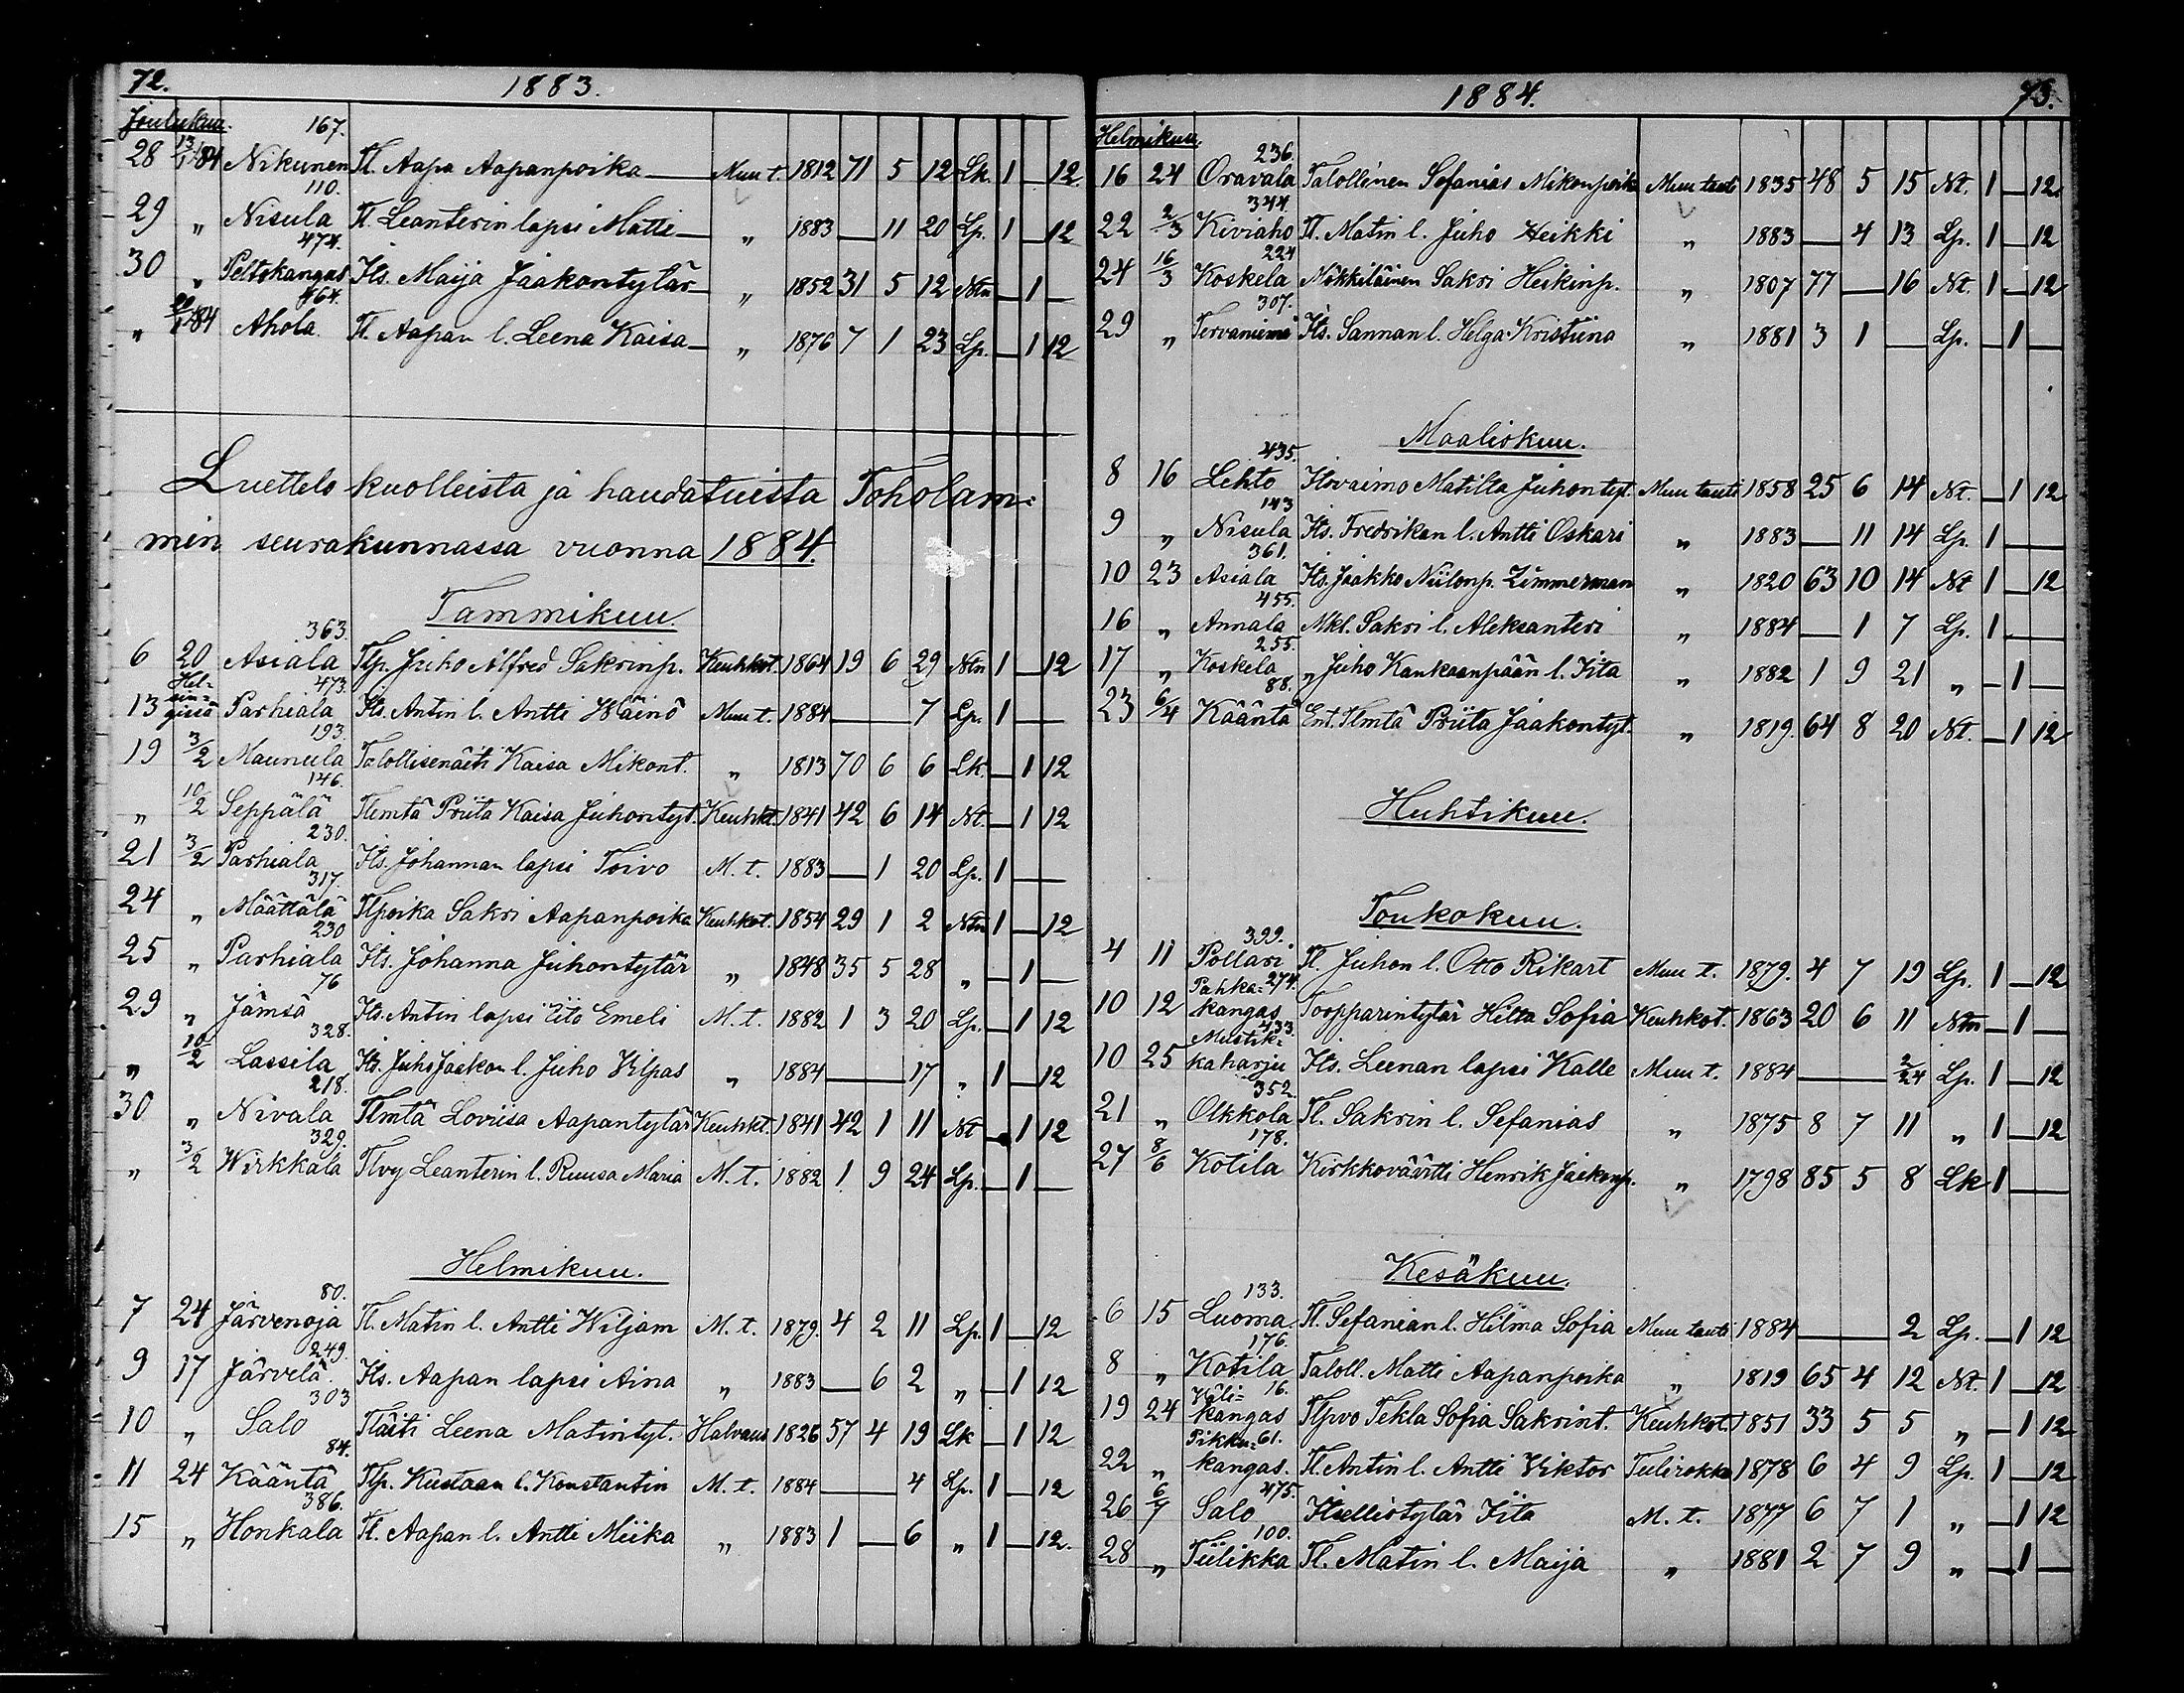 72. 1883.
Joulukuu. 167.
28 13/1 84 Nikunen Tl. Aapa Aapanpoika — Muu t. 1812 71 5 12 Lk. 1 — 12
110.
29 " Nisula Tl. Leanterin lapsi Matti — " 1883 — 11 20 Lp. 1 — 12
474.
30 " Peltokangas Its. Maija Jaakontytär — " 1852 31 5 12 Ntn — 1 —
464.
" 20/1 84 Ahola Tl. Aapan l. Leena Kaisa — " 1876 7 1 23 Lp. — 1 12
Luettelo kuolleista ja haudatuista Toholam=
min seurakunnassa vuonna 1884.
Tammikuu.
363.
6 20 Asiala Tlp. Juho Alfred Sakrinp. Keuhkot. 1864 19 6 29 Ntn 1 — 12
473.
13 Hel=sin=gissä Parhiala Its. Antin l. Antti Wäinö Muu t. 1884 — 7 Lp. 1 —
193.
19 3/2 Maunula Talollisenäiti Kaisa Mikont. " 1813 70 6 6 Lk. — 1 12
146.
" 10/2 Seppälä Tlemtä Priita Kaisa Juhontyt. Keuhkt. 1841 42 6 14 Nt. — 1 12
230.
21 3/2 Parhiala Its. Johannan lapsi Toivo M. t. 1883 — 1 20 Lp. 1 —
317.
24 " Määttälä Tlpoika Sakri Aapanpoika Keuhkot. 1854 29 1 2 Ntn 1 — 12
230
25 " Parhiala Its. Johanna Juhontytär " 1848 35 5 28 " — 1 —
76
29 " Jämsä Its. Antin lapsi Iito Emeli M. t. 1882 1 3 20 Lp. — 1 12
328.
" 10/2 Lassila Its. Juho Jaakon l. Juho Vilpas " 1884 — 17 " 1 — 12
218.
30 " Nivala Tlmtä Loviisa Aapantytär Keuhkt. 1841 42 1 11 Nt — 1 12
329.
" 3/2 Wirkkala Tlvy Leanterin l. Ruusa Maria M. t. 1882 1 9 24 Lp. — 1 —
Helmikuu.
80.
7 24 Järvenoja Tl. Matin l. Antti Wiljam M. t. 1879. 4 2 11 Lp. 1 — 12
249.
9 17 Järvelä Its. Aapan lapsi Aina " 1883 — 6 2 " — 1 12
303
10 " Salo Tläiti Leena Matintyt. Halvaus 1826 57 4 19 Lk — 1 12
84.
11 24 Kääntä Tlp. Kustaan l. Konstantin M. t. 1884 — 4 Lp. 1 — 12
386.
15 " Honkala Tl. Aapan l. Antti Miika " 1883 1 — 6 " 1 — 12.
1884. 73.
Helmikuu.
236.
16 24 Oravala Talollinen Sefanias Mikonpoika Muu tauti 1835 48 5 15 Nt. 1 — 12
344.
22 2/3 Kiviaho Tl. Matin l. Juho Heikki " 1883 — 4 13 Lp. 1 — 12
224
24 16/3 Koskela Mökkiläinen Sakri Heikinp. " 1807 77 — 16 Nt. 1 — 12
307.
29 " Tervaniemi Its. Sannan l. Helga Kristiina " 1881 3 1 — Lp. — 1 —
Maaliskuu.
435.
8 16 Lehto Itsvaimo Matilta Juhontyt. Muu tauti 1858 25 6 14 Nt. — 1 12
143
9 " Nisula Its. Fredrikan l. Antti Oskari " 1883 — 11 14 Lp. 1 —
361.
10 23 Asiala Its. Jaakko Niilonp. Zimmerman " 1820 63 10 14 Nt 1 — 12
455.
16 " Annala Mkl. Sakri l. Aleksanteri " 1884 — 1 7 Lp. 1 —
255.
17 " Koskela " Juho Kankaanpään l. Iita " 1882 1 9 21 " — 1 —
88.
23 6/4 Kääntä Ent. Tlmtä Priita Jaakontyt. " 1819. 64 8 20 Nt. — 1 12
Huhtikuu.
Toukokuu.
399.
4 11 Pollari Tl. Juhon l. Otto Rikart Muu t. 1879. 4 7 19 Lp. 1 — 12
274.
10 12 Pahka=kangas Toopparintytär Hilta Sofia Keuhkot. 1863 20 6 11 Ntn — 1 —
433.
10 25 Mustik=kaharju Its. Leenan lapsi Kalle Muu t. 1884 — 2/24 Lp. 1 — 12
352.
21 " Olkkola Tl. Sakrin l. Sefanias " 1875 8 7 11 " 1 — 12
178.
27 8/6 Kotila Kirkkoväärtti Henrik Jaakonp. " 1798 85 5 8 Lk 1 —
Kesäkuu.
133.
6 15 Luoma Tl. Sefanian l. Hilma Sofia Muu tauti 1884 — 2 Lp. — 1 12
176.
8 " Kotila Taloll. Matti Aapanpoika " 1819 65 4 12 Nt. 1 — 12
16.
19 24 Väli=kangas Tlpvo Tekla Sofia Sakrint. Keuhkot. 1851 33 5 5 " — 1 12
61.
22 " Pikku=kangas. Tl. Antin l. Antti Viktor Tulirokko 1878 6 4 9 Lp. 1 — 12
475.
26 6/7 Salo Itsellistytär Iita M. t. 1877 6 7 1 " — 1 12
100.
28 " Tiilikka Tl. Matin l. Maija " 1881 2 7 9 " — 1 —